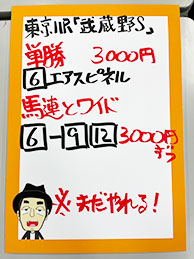 東京11R「武蔵野S」
単勝 3000円
6 エアスピネル
馬連とワイド
6-9 12 3000円
ずつ
※まだやれる!